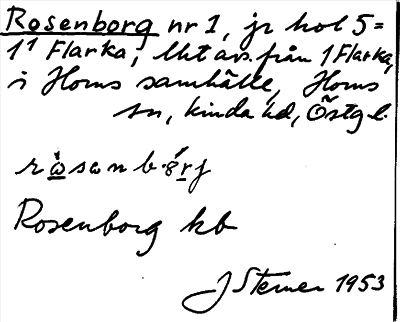 Rosenborg nr 1, jr hol 5=
1¹ Flarka, lht avs. från 1 Flarka,
i Horns samhälle, Horns
sn, Kinda hd, Östg l.
Rosenborg kb
J Sterner 1953